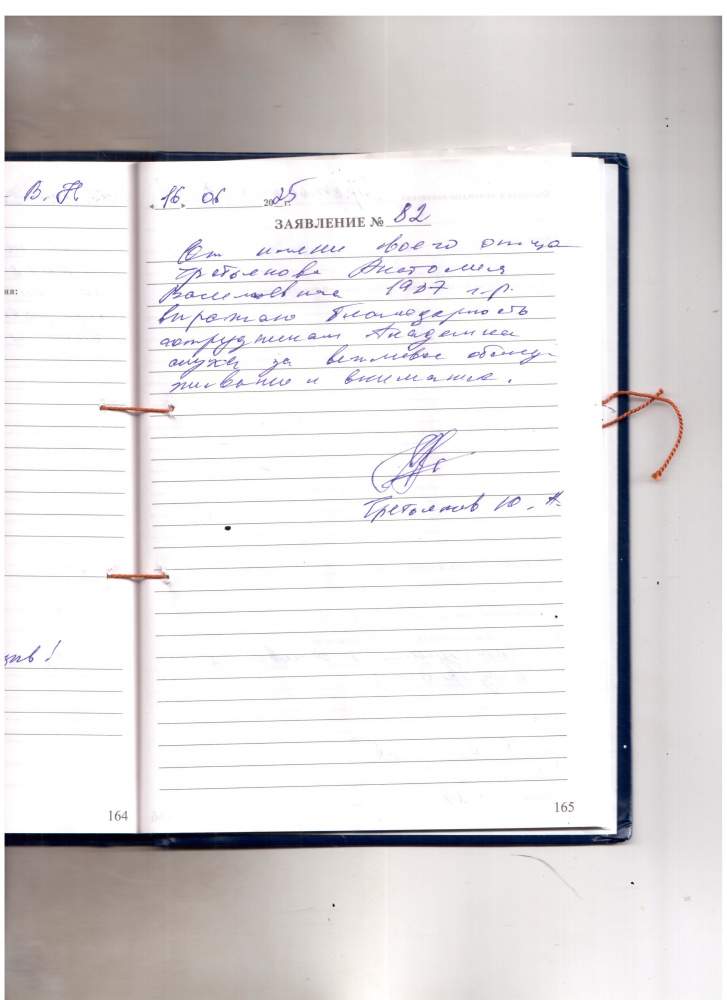 В. Н
ия:
ив!
164
«16» 06 2025 г.
ЗАЯВЛЕНИЕ № 82
От имени своего отца
Третьякова Анатолия
Васильевича 1937 г.р.
выражаю благодарность
сотрудникам Академии
слуха за вежливое обслу-
живание и внимание.
Третьяков Ю. А.
165